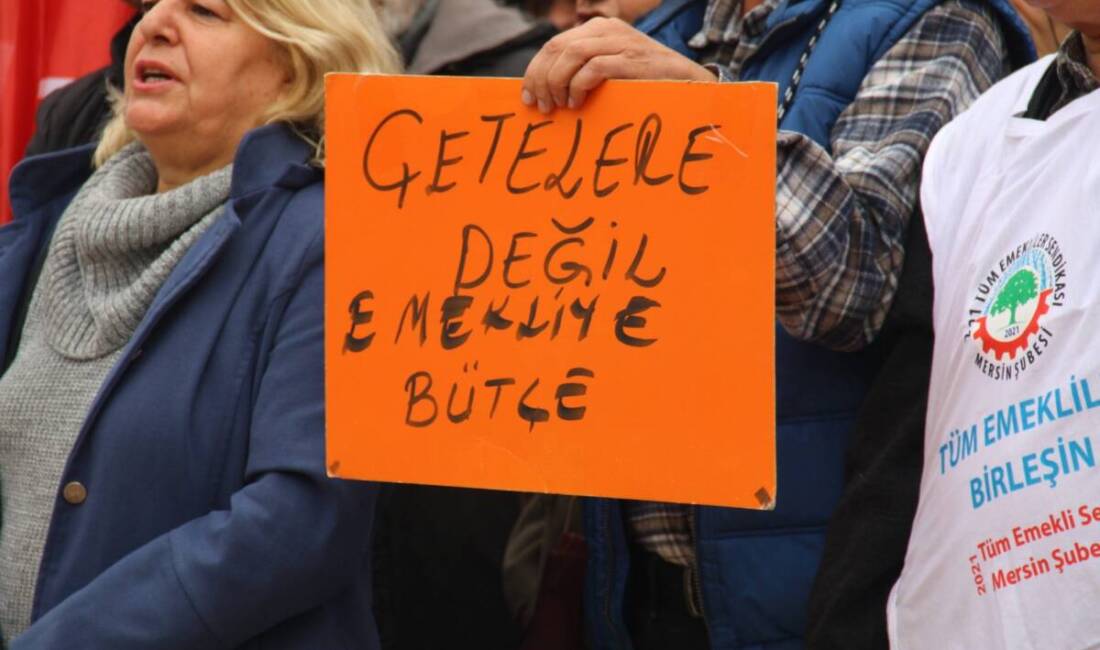 ÇETELERE
DEĞİL
EMEKLİYE
BÜTÇE
TÜM EMEKLİLER SENDİKASI
2021
MERSİN ŞUBESİ
TÜM EMEKLİL
BİRLEŞİN
2021
Tüm Emekli Se
Mersin Şube